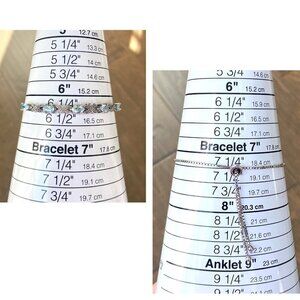 5" 12.7 cm
5 1/4" 13.3 cm
5 1/2" 14 cm
5 3/4" 14.6 cm
6" 15.2 cm
6 1/4" 15.9 cm
6 1/2" 16.5 cm
6 3/4" 17.1 cm
Bracelet 7" 17.8 cm
7 1/4" 18.4 cm
7 1/2" 19.1 cm
7 3/4" 19.7 cm
5 3/4" 14.6 cm
6" 15.2 cm
6 1/4" 15.9 cm
6 1/2" 16.5 cm
6 3/4" 17.1 cm
Bracelet 7" 17.8 cm
7 1/4" 18.4 cm
7 1/2" 19.1 cm
7 3/4" 19.7 cm
8" 20.3 cm
8 1/4" 21 cm
8 1/2" 21.6 cm
8 3/4" 22.2 cm
Anklet 9" 23 cm
9 1/4" 23.5 cm
9 1/2" 24.1 cm